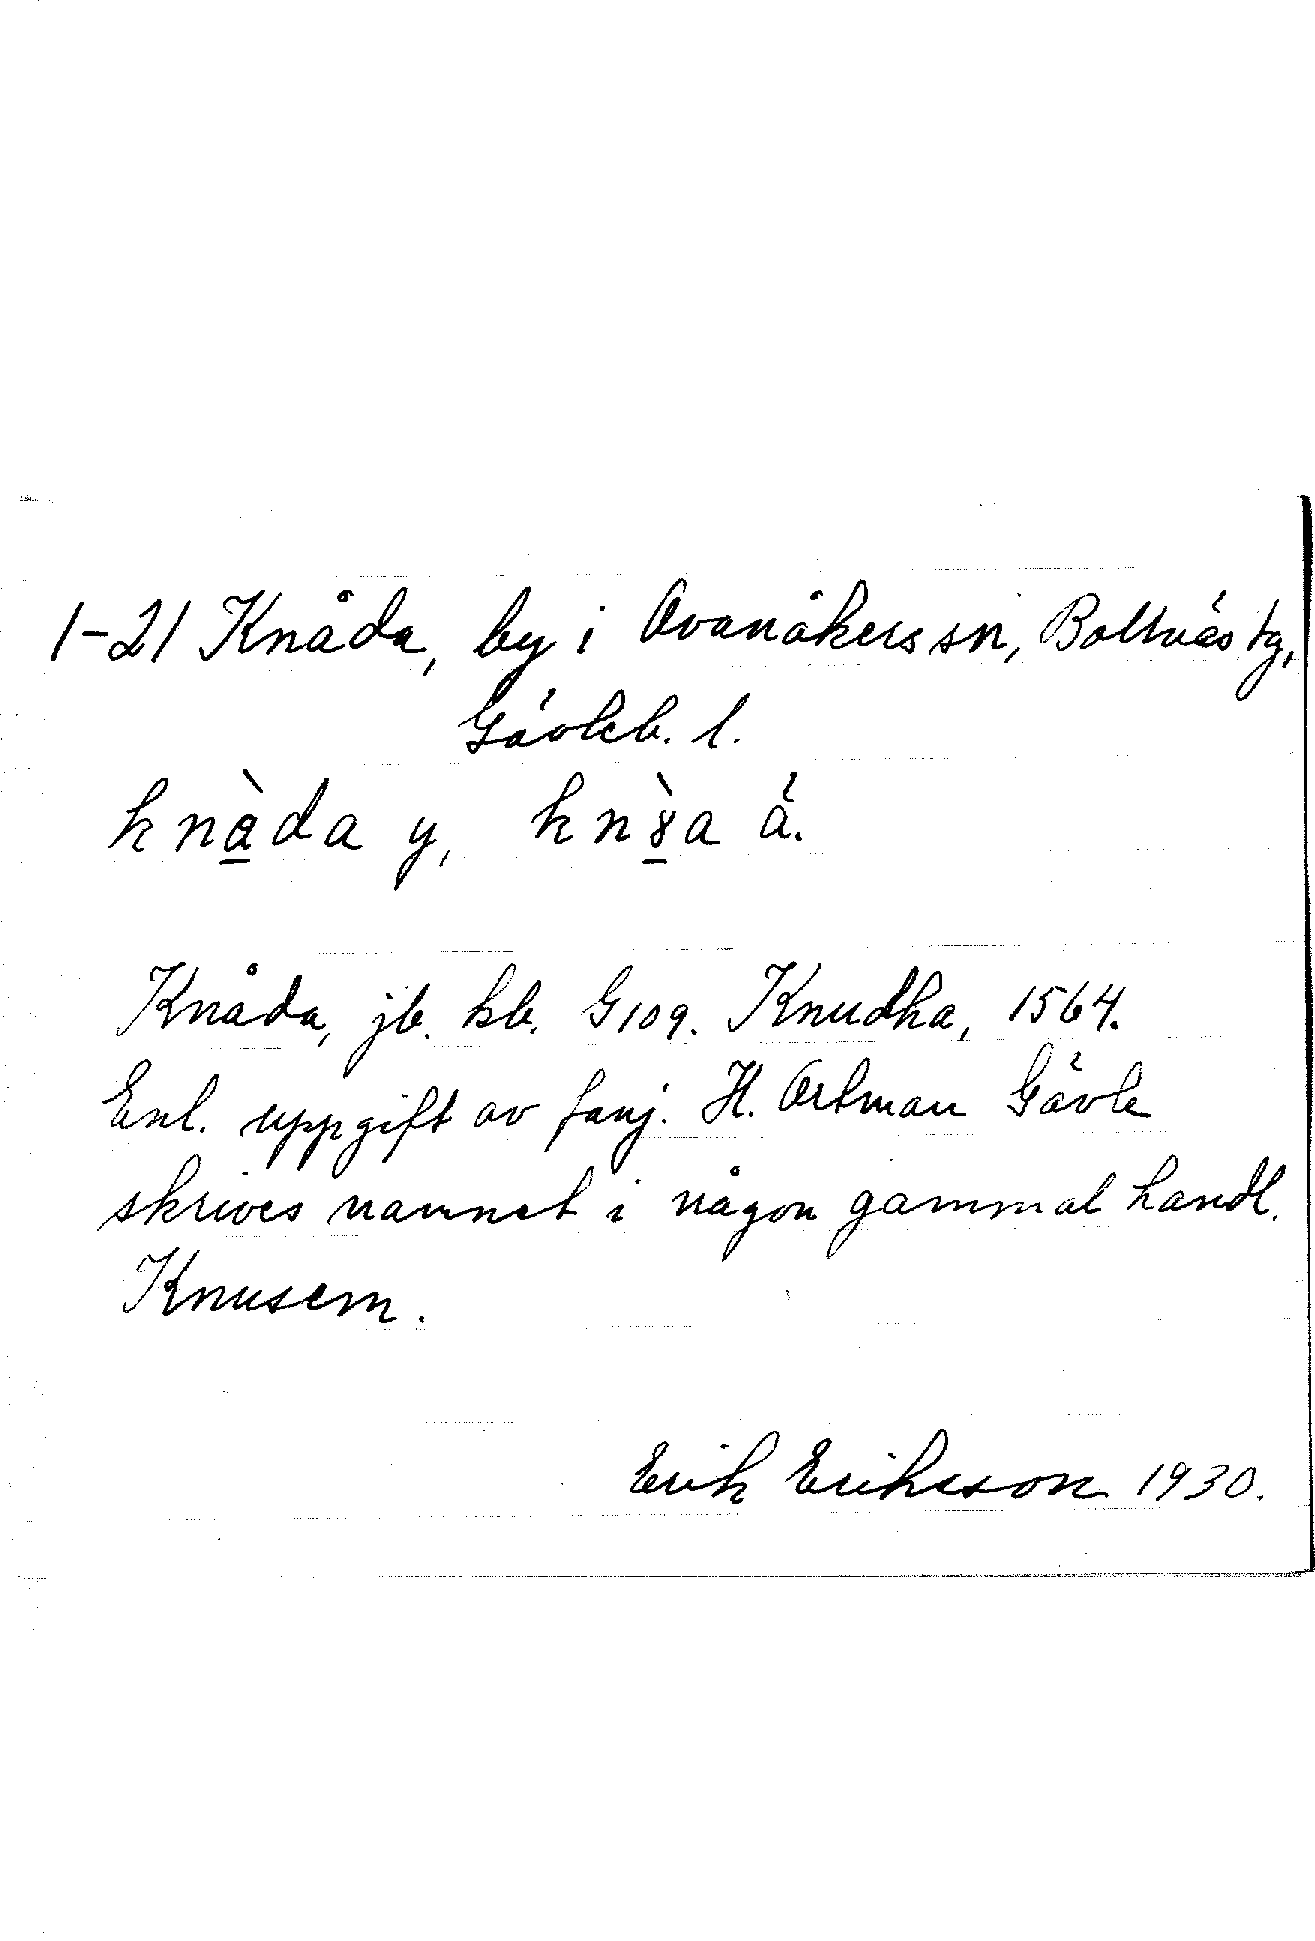 1-21 Knåda, by i Ovanåkers sn, Bollnäs tg,
Gävleb. l.
knàda y, kn a ä.
Knåda, jb. kb. G109. Knudha, 1564.
Enl. uppgift av fanj. H. Ortman Gävle
skrives namnet i någon gammal handl.
Knusem.
Erik Eriksson 1930.